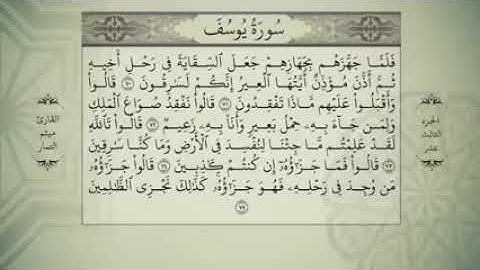 سُورَةُ يُوسُفَ
فَلَمَّا جَهَّزَهُم بِجَهَازِهِمْ جَعَلَ السِّقَايَةَ فِي رَحْلِ أَخِيهِ
ثُمَّ أَذَّنَ مُؤَذِّنٌ أَيَّتُهَا الْعِيرُ إِنَّكُمْ لَسَارِقُونَ ﴿٧٠﴾ قَالُوا
وَأَقْبَلُوا عَلَيْهِم مَّاذَا تَفْقِدُونَ ﴿٧١﴾ قَالُوا نَفْقِدُ صُوَاعَ الْمَلِكِ
وَلِمَن جَاءَ بِهِ حِمْلُ بَعِيرٍ وَأَنَا بِهِ زَعِيمٌ ﴿٧٢﴾ قَالُوا تَاللَّهِ
لَقَدْ عَلِمْتُم مَّا جِئْنَا لِنُفْسِدَ فِي الْأَرْضِ وَمَا كُنَّا سَارِقِينَ
﴿٧٣﴾ قَالُوا فَمَا جَزَاؤُهُ إِن كُنتُمْ كَاذِبِينَ ﴿٧٤﴾ قَالُوا جَزَاؤُهُ
مَن وُجِدَ فِي رَحْلِهِ فَهُوَ جَزَاؤُهُ كَذَٰلِكَ نَجْزِي الظَّالِمِينَ
﴿٧٥﴾
الجزء
الثالث
عشر
القارئ
ميثم
التمار